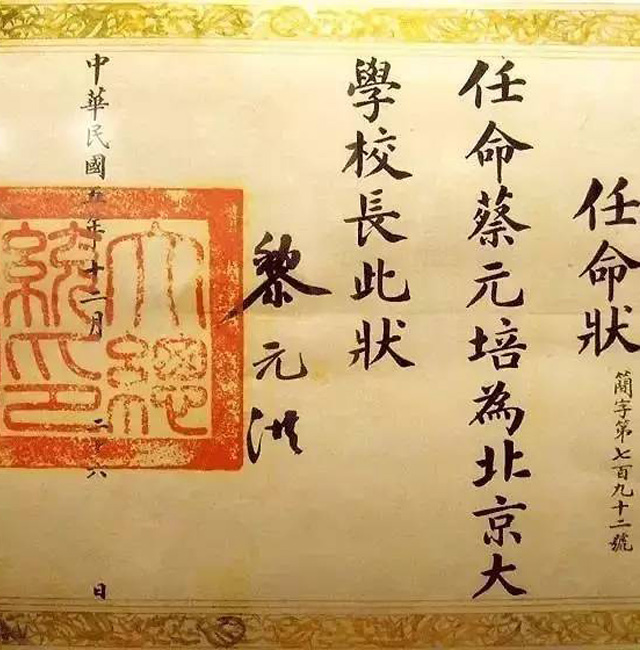 任命狀
簡字第七百九十二號
任命蔡元培為北京大
學校長此狀
黎元洪
大總統印
中華民國五年十二月二十六日